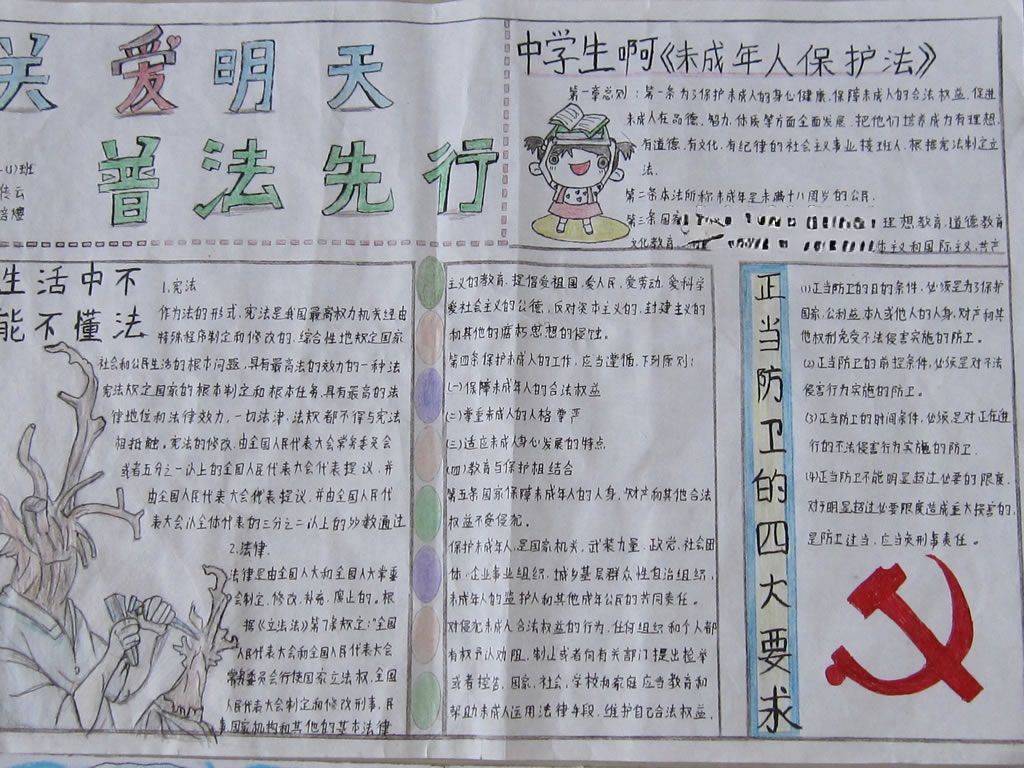 关爱明天
普法先行
班
中学生啊《未成年人保护法》
第一章总则：第一条为了保护未成人的身心健康，保障未成人的合法权益，促进
未成人在品德、智力、体质等方面全面发展，把他们培养成为有理想，
有道德，有文化，有纪律的社会主义事业接班人，根据宪法制定立
法。
第二条本法所称未成年是未满十八周岁的公民。
第三条国家
理想教育，道德教育
文化教育
体主义和国际主义，共产
主义的教育，提倡爱祖国，爱人民，爱劳动，爱科学
爱社会主义的公德，反对资本主义的，封建主义的
和其他的腐朽思想的侵蚀。
第四条保护未成人的工作，应当遵循，下列原则：
(一)保障未成年人的合法权益
(二)尊重未成人的人格尊严
(三)适应未成人身心发展的特点
(四)教育与保护相结合
第五条国家保障未成年人的人身，财产和其他合法
权益不受侵犯。
保护未成年人，是国家机关，武装力量，政党，社会团
体，企业事业组织，城乡基层群众性自治组织，
未成年人的监护人和其他成年公民的共同责任。
对侵犯未成人合法权益的行为，任何组织和个人都
有权予以劝阻，制止或者向有关部门提出检举
或者控告。国家，社会，学校和家庭应当教育和
帮助未成人运用法律手段，维护自己合法权益，
生活中不
能不懂法
1.宪法
作为法的形式，宪法是我国最高权力机关经由
特殊程序制定和修改的，综合性地规定国家
社会和公民生活的根本问题，具有最高法的效力的一种法
宪法规定国家的根本制定和根本任务，具有最高的法
律地位和法律效力，一切法律，法权都不得与宪法
相抵触。宪法的修改，由全国人民代表大会常务委员会
或者五分之一以上的全国人民代表大会代表提议，并
由全国人民代表大会代表提议，并由全国人民代
表大会以全体代表的三分之二以上的多数通过
2.法律.
法律是由全国人大和全国人大常委
会制定，修改，补充，废止的。根
据《立法法》第7条规定："全国
人民代表大会和全国人民代表大会
常务委员会行使国家立法权，全国
人民代表大会制定和修改刑事，民
事，国家机构和其他的基本法律
正当防卫的四大要求
(1)正当防卫的目的条件，必须是为了保护
国家，公利益，本人或他人的人身，财产和其
他权利免受不法侵害实施的防卫。
(2)正当防卫的前提条件，必须是对不法
侵害行为实施的防卫。
(3)正当防卫的时间条件，必须是对正在进
行的不法侵害行为实施的防卫.
(4)正当防卫不能明显超过必要的限度，
对于明显超过必要限度造成重大损害的，
是防卫过当，应当负刑事责任。